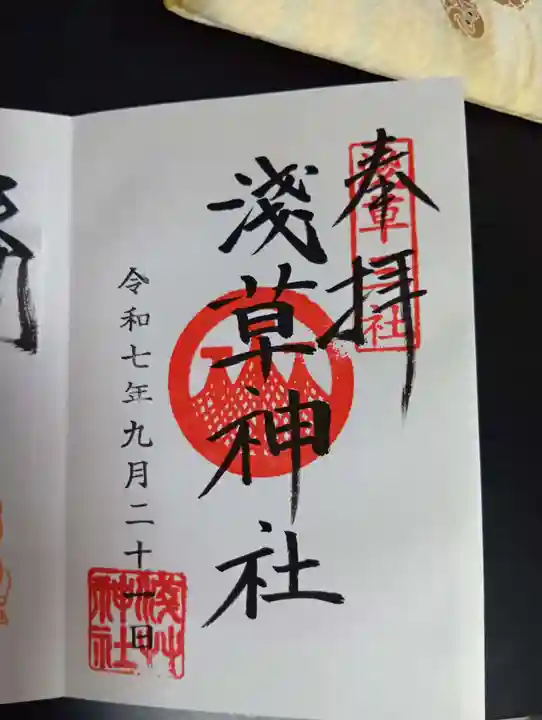 奉拝
淺草神社
令和七年九月二十一日
淺草神社